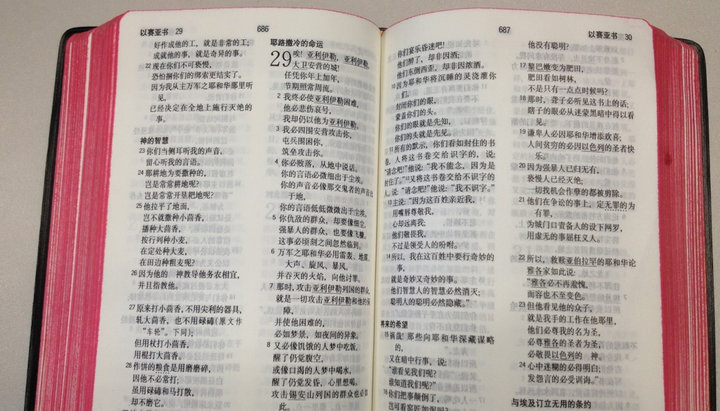 以赛亚书 29
686
好作成他的工，就是非常的工；
成就他的事，就是奇异的事。
22 现在你们不可亵慢，
恐怕捆你们的绑索更结实了。
因为我从主万军之耶和华那里听见，
已经决定在全地上施行灭绝的事。
神的智慧
23 你们当侧耳听我的声音，
留心听我的言语。
24 那耕地为要撒种的，
岂是常常耕地呢？
岂是常常开垦耙地呢？
25 他拉平了地面，
岂不就撒种小茴香，
播种大茴香，
按行列种小麦，
在定处种大麦，
在田边种粗麦呢？
26 因为他的 神教导他务农相宜，
并且指教他。
27 原来打小茴香，不用尖利的器具，
轧大茴香，也不用碌碡（原文作“车轮”。下同）；
但用杖打小茴香，
用棍打大茴香。
28 作饼的粮食是用磨磨碎，
因他不必常打；
虽用碌碡和马打散，
却不磨它。
耶路撒冷的命运
29 唉！亚利伊勒，亚利伊勒，
大卫安营的城！
任凭你年上加年，
节期照常周流。
2 我终必使亚利伊勒困难，
他必悲伤哀号，
我却仍以他为亚利伊勒。
3 我必四围安营攻击你，
屯兵围困你，
筑垒攻击你。
4 你必败落，从地中说话，
你的言语必微细出于尘埃。
你的声音必像那交鬼者的声音出于地，
你的言语低低微微出于尘埃。
5 你仇敌的群众，却要像细尘，
强暴人的群众，也要像飞糠。
这事必顷刻之间忽然临到。
6 万军之耶和华必用雷轰、地震、
大声、旋风、暴风，
并吞灭的火焰，向他讨罪。
7 那时，攻击亚利伊勒列国的群众，
就是一切攻击亚利伊勒和他的保障，
并使他困难的，
必如梦景，如夜间的异象。
8 又必像饥饿的人梦中吃饭，
醒了仍觉腹空，
或像口渴的人梦中喝水，
醒了仍觉发昏，心里想喝。
攻击锡安山列国的群众也必如此。
687
以赛亚书 30
你们宴乐昏迷吧！
他们醉了，却非因酒；
他们东倒西歪，却非因浓酒。
10 因为耶和华将沉睡的灵浇灌你们，
封闭你们的眼，
蒙盖你们的头。
你们的眼就是先知，
你们的头就是先见。
11 所有的默示，你们看如封住的书卷，人将这书卷交给识字的，说：“请念吧！”他说：“我不能念，因为是封住了。” 12 又将这书卷交给不识字的人，说：“请念吧！”他说：“我不识字。”
13 主说：“因为这百姓亲近我，
用嘴唇尊敬我，
心却远离我；
他们敬畏我，
不过是领受人的吩咐。
14 所以，我在这百姓中要行奇妙的事，
就是奇妙又奇妙的事。
他们智慧人的智慧必然消灭；
聪明人的聪明必然隐藏。”
将来的希望
15 祸哉！那些向耶和华深藏谋略的，
又在暗中行事，说：
“谁看见我们呢？
谁知道我们呢？”
16 你们把事颠倒了，
他没有聪明？
17 黎巴嫩变为肥田，
肥田看如树林，
不是只有一点点时候吗？
18 那时，聋子必听见这书上的话；
瞎子的眼必从迷蒙黑暗中得以看见。
19 谦卑人必因耶和华增添欢喜；
人间贫穷的必因以色列的圣者快乐。
20 因为强暴人已归无有，
亵慢人已经灭绝，
一切找机会作孽的都被剪除。
21 他们在争讼的事上，定无罪的为有罪，
为城门口责备人的设下网罗，
用虚无的事屈枉义人。
22 所以，救赎亚伯拉罕的耶和华论雅各家如此说：
“雅各必不再羞愧，
面容也不至变色。
23 但他看见他的众子，
就是我手的工作在他那里，
他们必尊我的名为圣，
必尊雅各的圣者为圣，
必敬畏以色列的 神。
24 心中迷糊的必得明白；
发怨言的必受训诲。”
与埃及订立无用的条约